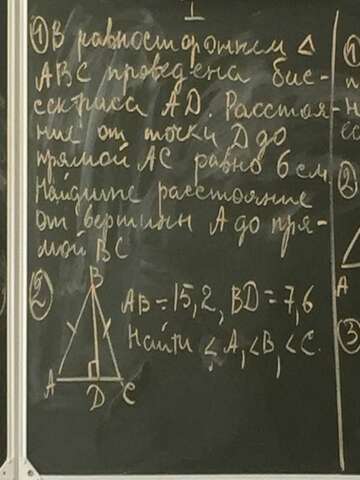 1
① В равностороннем △
ABC проведена бис-
сектриса AD. Расстоя-
ние от точки D до
прямой AC равно 6 см
Найдите расстояние
от вершин A до пря-
мой BC
②
B
AB = 15,2, BD = 7,6
Найти <A, <B, <C.
A
D
C
①
②
A
③